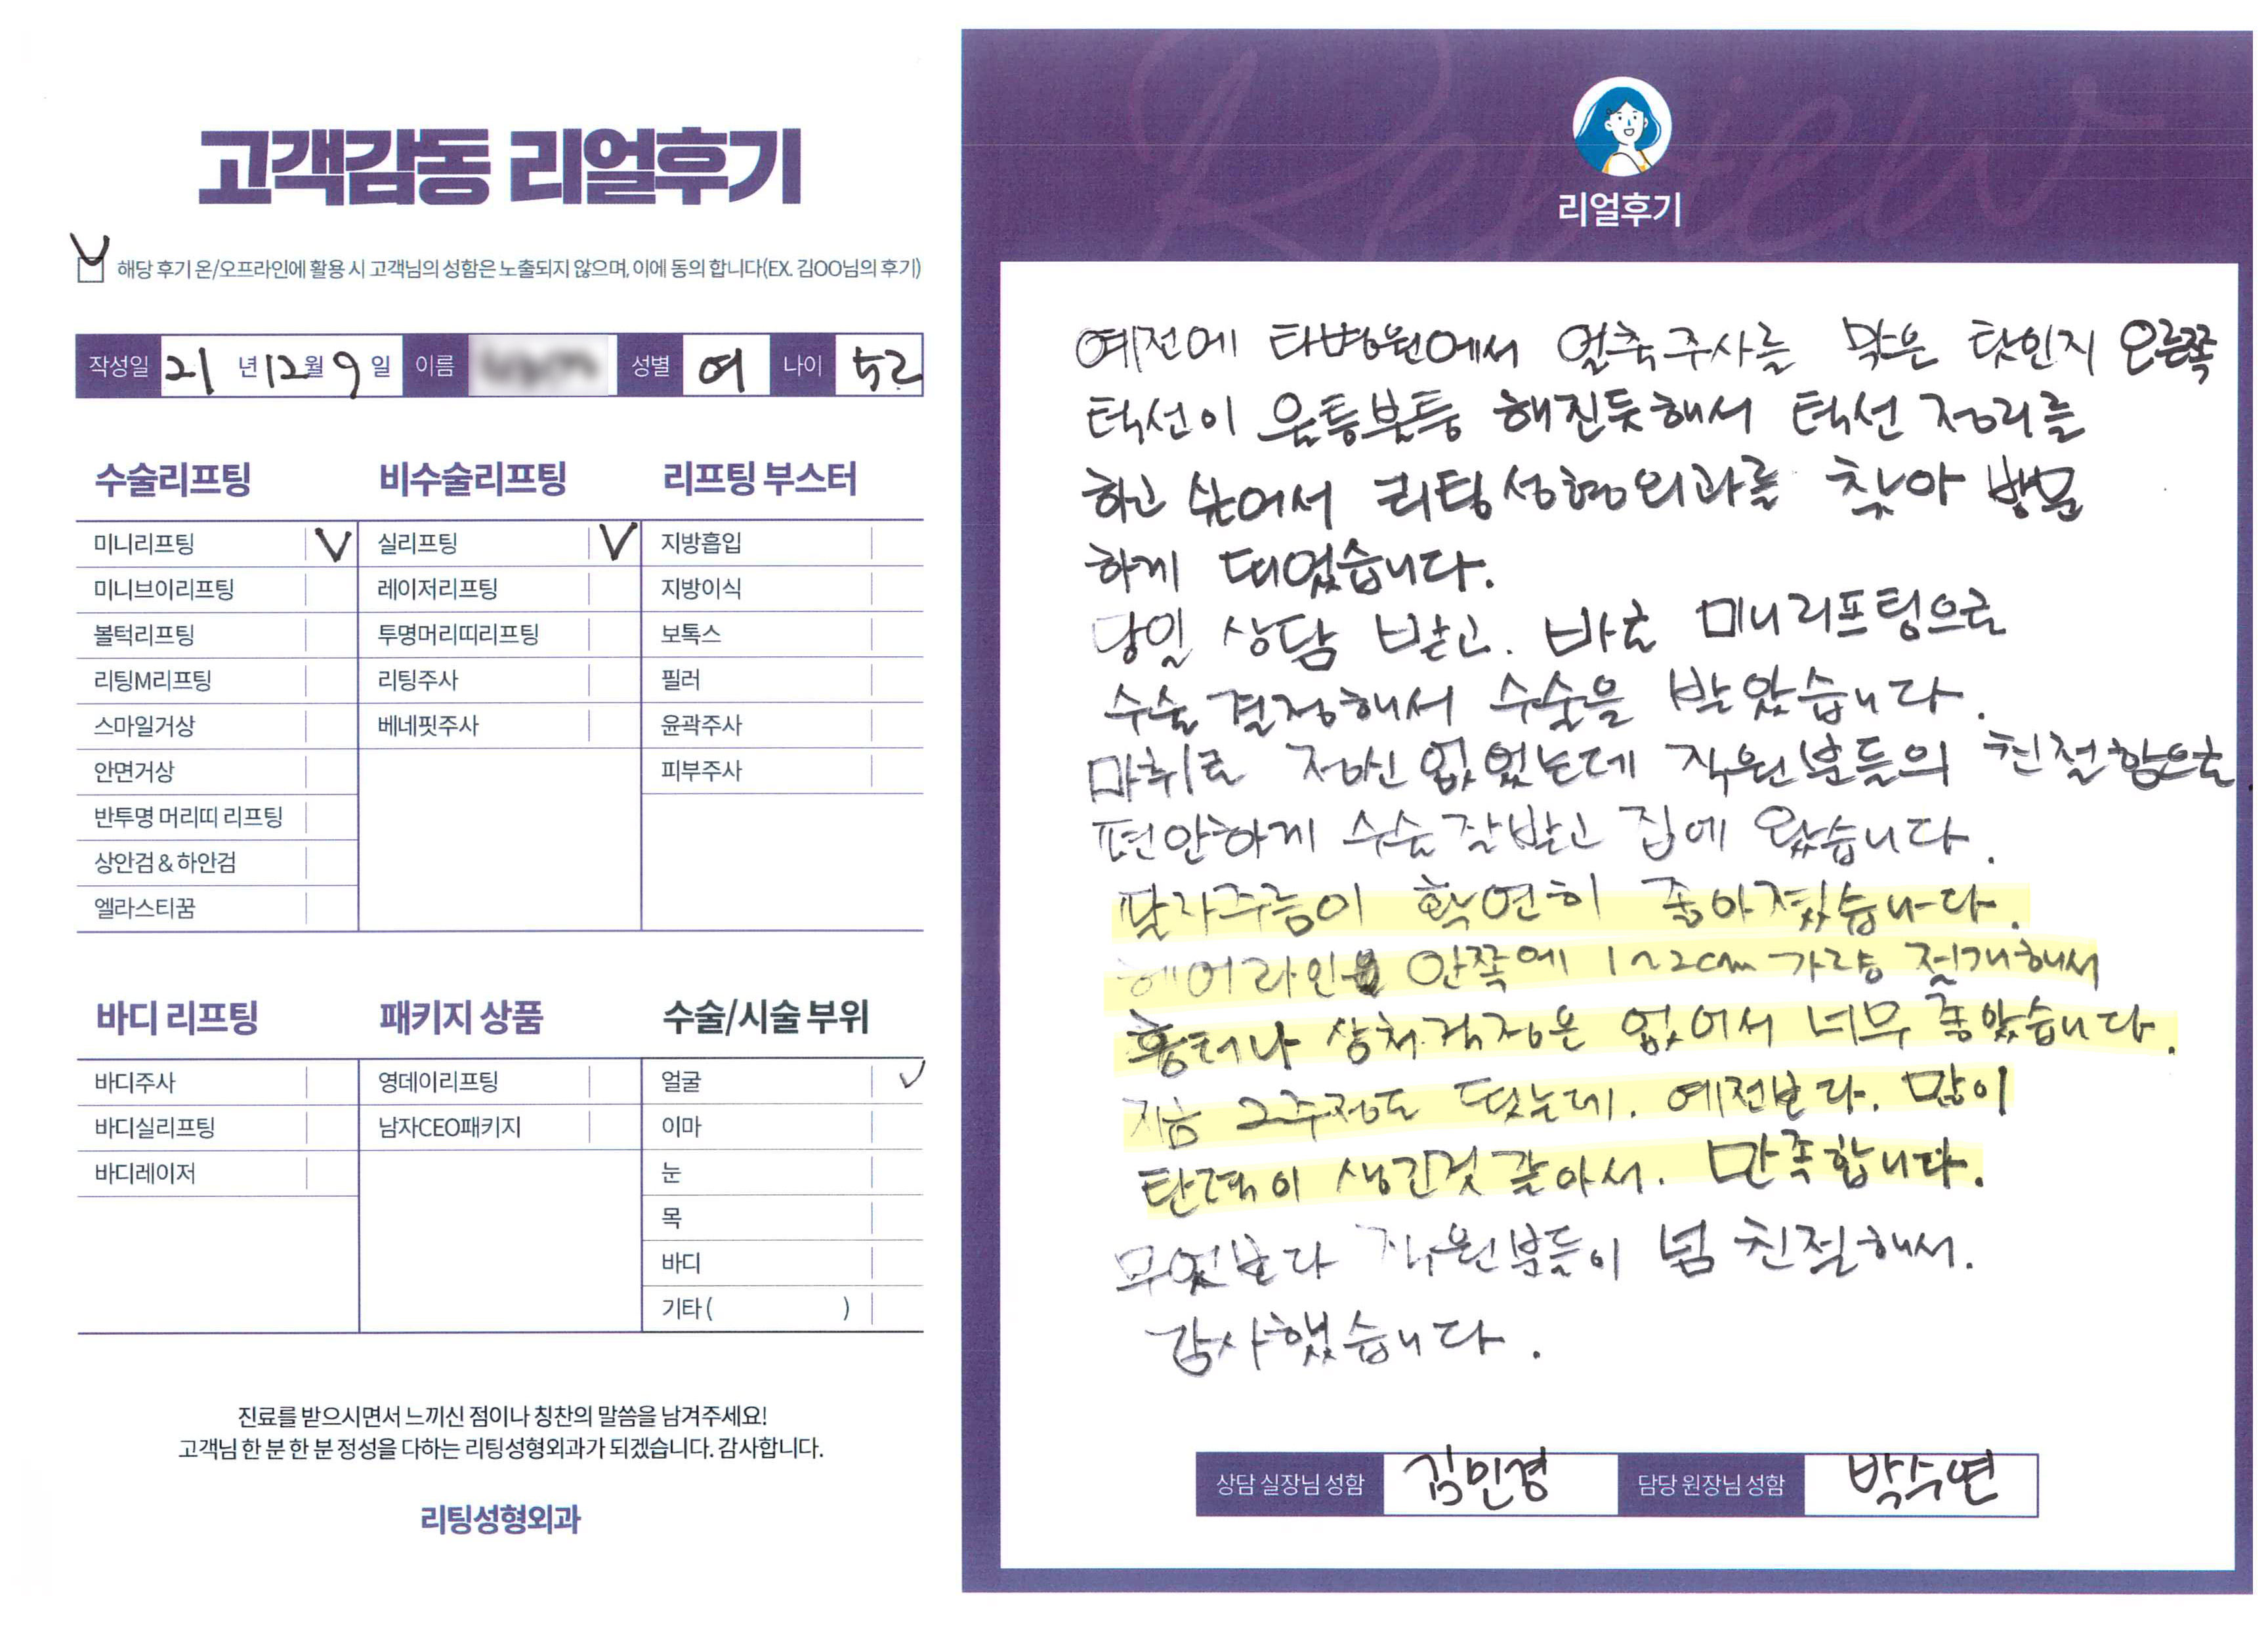 고객감동 리얼후기
해당 후기 온/오프라인에 활용 시 고객님의 성함은 노출되지 않으며, 이에 동의 합니다(EX. 김OO님의 후기)
작성일 21 년 12 월 9 일 이름 성별 여 나이 52
수술리프팅
미니리프팅 V
미니브이리프팅
볼턱리프팅
리팅M리프팅
스마일거상
안면거상
반투명 머리띠 리프팅
상안검 & 하안검
엘라스티꿈
비수술리프팅
실리프팅 V
레이저리프팅
투명머리띠리프팅
리팅주사
베네핏주사
리프팅 부스터
지방흡입
지방이식
보톡스
필러
윤곽주사
피부주사
바디 리프팅
바디주사
바디실리프팅
바디레이저
패키지 상품
영데이리프팅
남자CEO패키지
수술/시술 부위
얼굴 ✓
이마
눈
목
바디
기타 ( )
진료를 받으시면서 느끼신 점이나 칭찬의 말씀을 남겨주세요!
고객님 한 분 한 분 정성을 다하는 리팅성형외과가 되겠습니다. 감사합니다.
리팅성형외과
Review
리얼후기
예전에 타병원에서 얼축주사를 맞은 탓인지 오른쪽
턱선이 울퉁불퉁 해진듯해서 턱선 정리를
하고 싶어서 리팅성형외과를 찾아 방문
하게 되었습니다.
당일 상담 받고. 바로 미니리프팅으로
수술 결정해서 수술을 받았습니다.
마취로 정신 없었는데 직원분들의 친절함으로
편안하게 수술 잘받고 집에 왔습니다.
팔자주름이 확연히 좋아졌습니다.
헤어라인 안쪽에 1~2cm 가량 절개해서
흉터나 상처 걱정은 없어서 너무 좋았습니다.
지금 2주정도 됐는데. 예전보다. 많이
탄력이 생긴것 같아서. 만족합니다.
무엇보다 직원분들이 넘 친절해서.
감사했습니다.
상담 실장님 성함 김민경 담당 원장님 성함 박수연